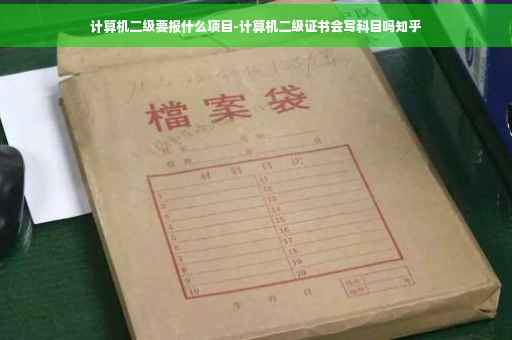 计算机二级要报什么项目-计算机二级证书会写科目吗知乎
檔案袋
材料目次
1 11
2 12
3 13
4 14
5 15
6 16
7 17
8 18
9 19
10 20
年 月 日